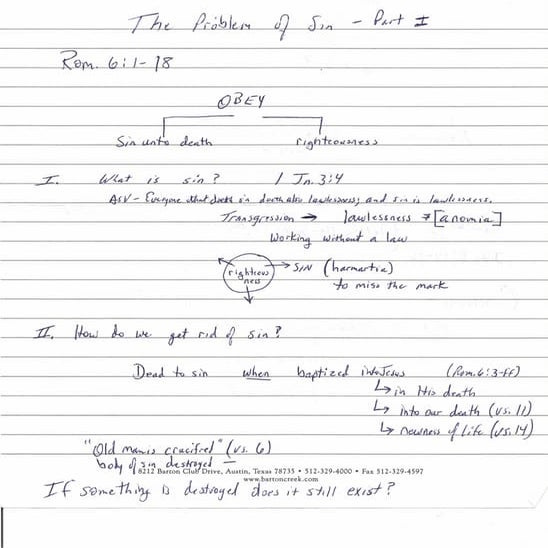 The Problem of Sin - Part I
Rom. 6:1-18
OBEY
Sin unto death righteousness
I. What is sin? 1 Jn. 3:4
ASV - Everyone that doeth sin doeth also lawlessness; and sin is lawlessness.
Transgression → lawlessness → [anomia]
Working without a law
righteous ness → SIN (harmartia)
to miss the mark
II. How do we get rid of sin?
Dead to sin when baptized into Jesus (Rom. 6:3-ff)
↳ in His death
↳ into our death (vs. 11)
↳ newness of life (vs. 14)
"Old man is crucified" (vs. 6)
body of sin destroyed -
8212 Barton Club Drive, Austin, Texas 78735 • 512-329-4000 • Fax 512-329-4597
www.bartoncreek.com
If something is destroyed does it still exist?